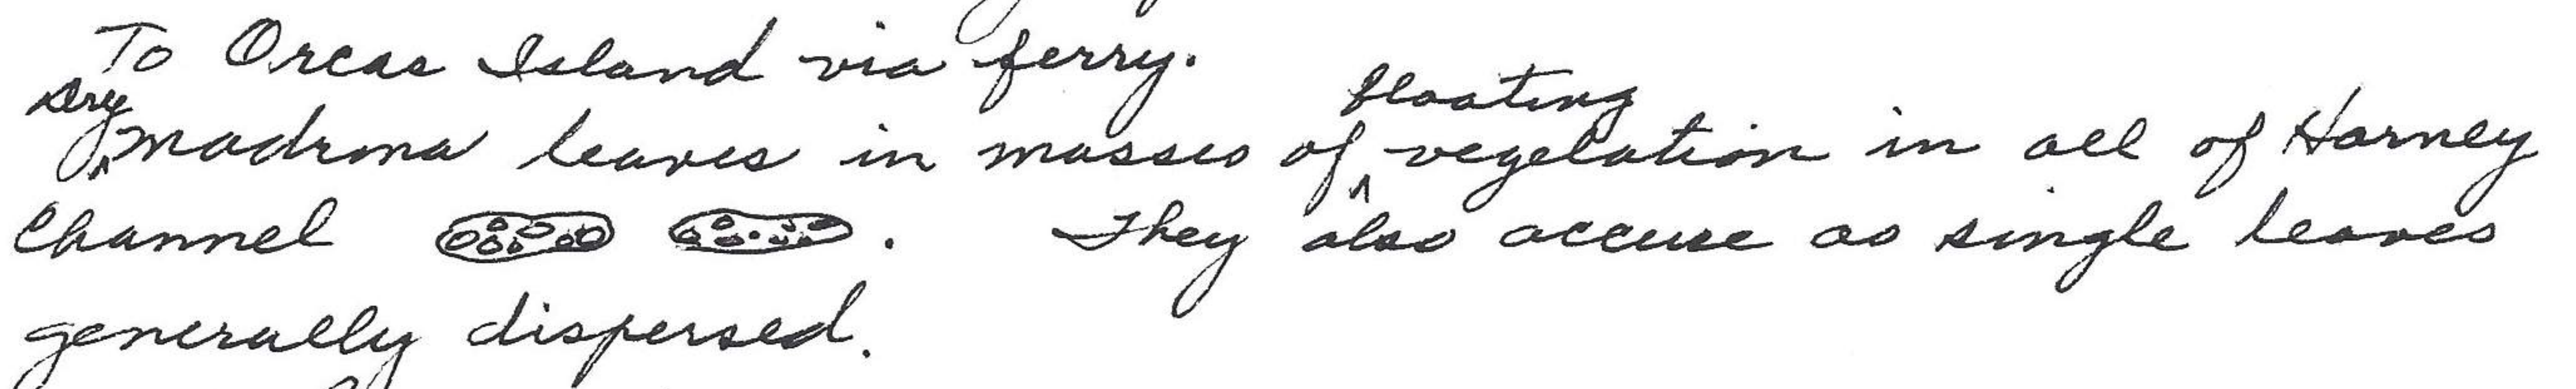 To Orcas Island via ferry.
Dry madrona leaves in masses of floating vegetation in all of Harney
Channel . They also occure as single leaves
generally dispersed.